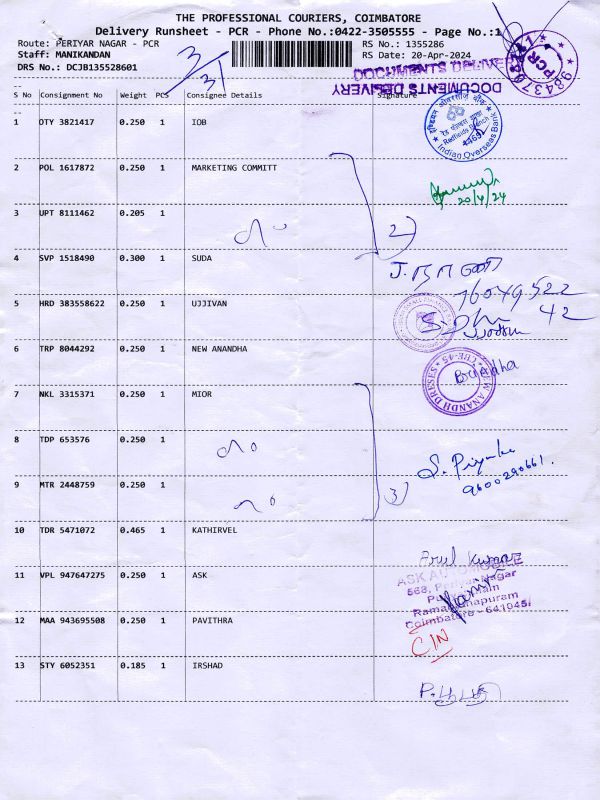 THE PROFESSIONAL COURIERS, COIMBATORE
Delivery Runsheet - PCR - Phone No.:0422-3505555 - Page No.:1
Route: PERIYAR NAGAR - PCR RS No.: 1355286
Staff: MANIKANDAN RS Date: 20-Apr-2024
DRS No.: DCJB135528601
3/31
DOCUMENTS DELIVERY
DOCUMENTS DELIVERY
PCR
S No Consignment No Weight PCS Consignee Details Signature
1 DTY 3821417 0.250 1 IOB
Redfields Branch
Indian Overseas Bank
2 POL 1617872 0.250 1 MARKETING COMMITT
20/4/24
3 UPT 8111462 0.205 1
2)
4 SVP 1518490 0.300 1 SUDA
76049522
42
5 HRD 383558622 0.250 1 UJJIVAN
6 TRP 8044292 0.250 1 NEW ANANDHA
NEW ANANDH DRESSES
CBE-45
7 NKL 3315371 0.250 1 MIOR
8 TDP 653576 0.250 1
S. Priyanka
9600290661.
9 MTR 2448759 0.250 1
3)
10 TDR 5471072 0.465 1 KATHIRVEL
Arul Kumar
11 VPL 947647275 0.250 1 ASK
ASK AUTOMOBILE
568, Periyar Nagar
Main
Ramanathapuram
Coimbatore - 641045
12 MAA 943695508 0.250 1 PAVITHRA
C/N
13 STY 6052351 0.185 1 IRSHAD